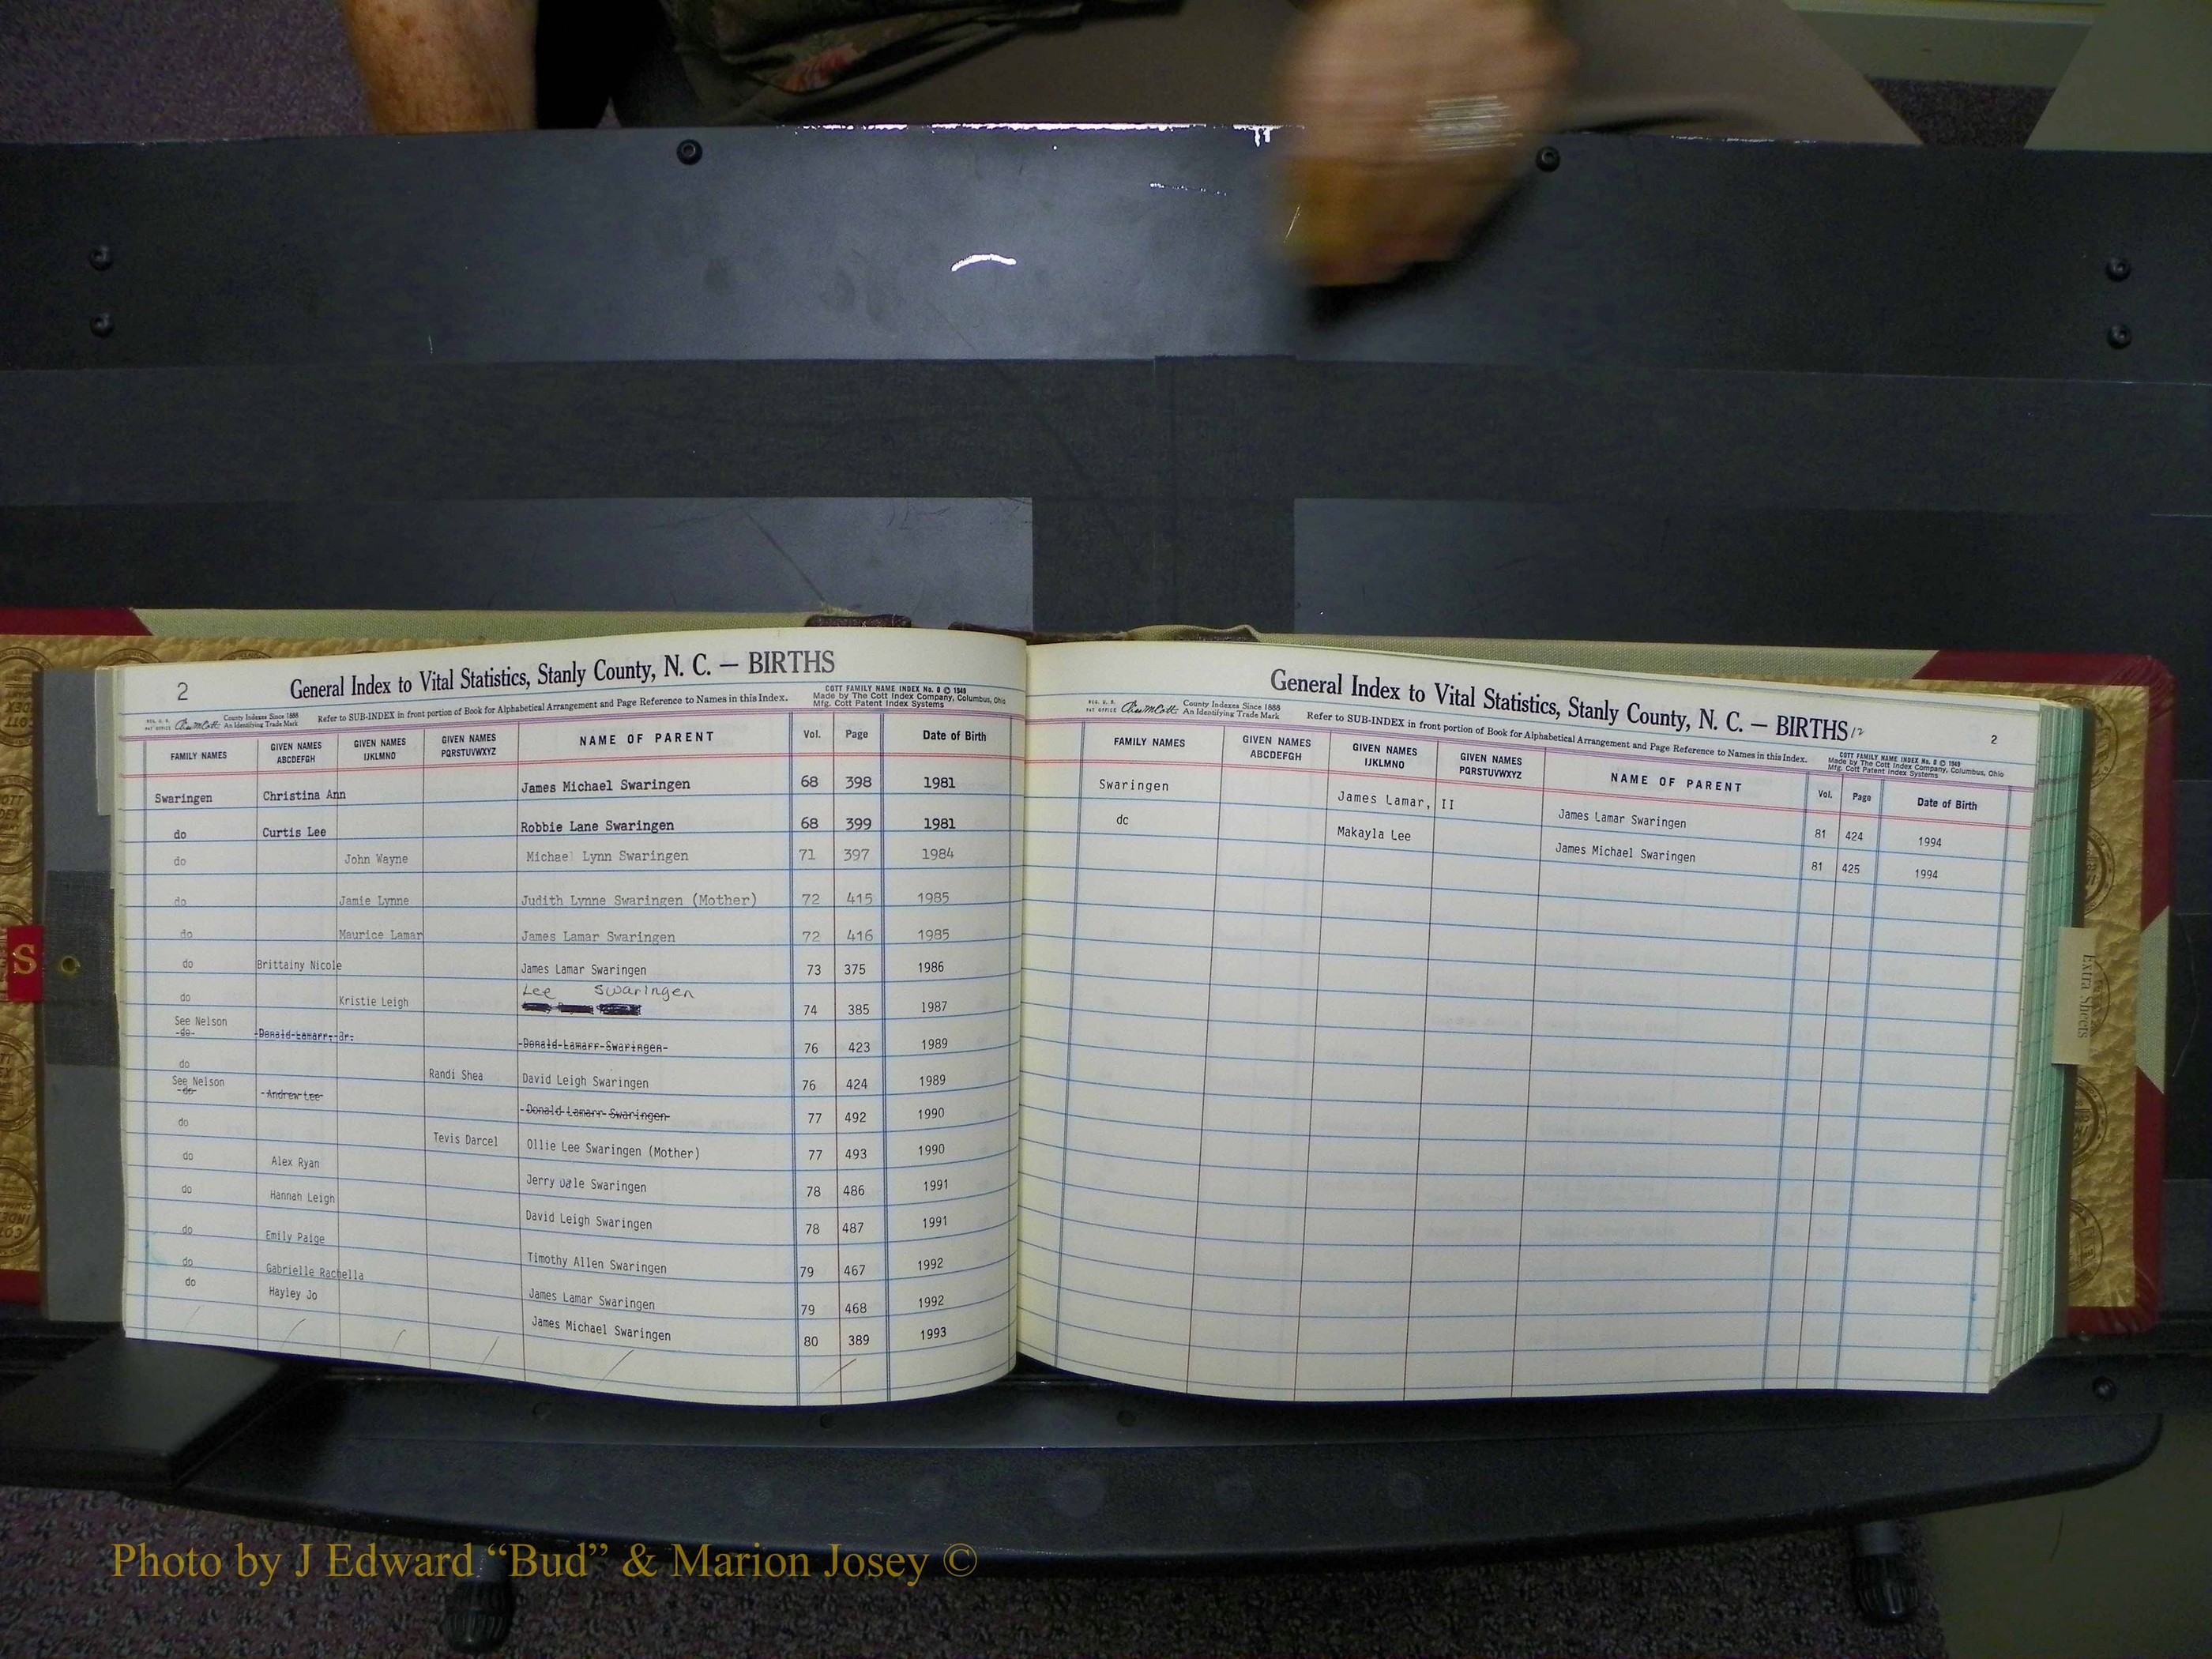 2
General Index to Vital Statistics, Stanly County, N. C. — BIRTHS
REG. U. S. PAT OFFICE County Indexes Since 1888 An Identifying Trade Mark
Refer to SUB-INDEX in front portion of Book for Alphabetical Arrangement and Page Reference to Names in this Index.
COTT FAMILY NAME INDEX No. 8 © 1949
Made by The Cott Index Company, Columbus, Ohio
Mfg. Cott Patent Index Systems
FAMILY NAMES GIVEN NAMES ABCDEFGH GIVEN NAMES IJKLMNO GIVEN NAMES PQRSTUVWXYZ NAME OF PARENT Vol. Page Date of Birth
Swaringen Christina Ann James Michael Swaringen 68 398 1981
do Curtis Lee Robbie Lane Swaringen 68 399 1981
do John Wayne Michael Lynn Swaringen 71 397 1984
do Jamie Lynne Judith Lynne Swaringen (Mother) 72 415 1985
do Maurice Lamar James Lamar Swaringen 72 416 1985
do Brittainy Nicole James Lamar Swaringen 73 375 1986
do Kristie Leigh Lee Swaringen 74 385 1987
See Nelson
do Donald Lamarr, Jr. Donald Lamarr Swaringen 76 423 1989
do Randi Shea David Leigh Swaringen 76 424 1989
See Nelson
do Andrew Lee Donald Lamarr Swaringen 77 492 1990
do Tevis Darcel Ollie Lee Swaringen (Mother) 77 493 1990
do Alex Ryan Jerry Dale Swaringen 78 486 1991
do Hannah Leigh David Leigh Swaringen 78 487 1991
do Emily Paige Timothy Allen Swaringen 79 467 1992
do Gabrielle Rachella James Lamar Swaringen 79 468 1992
do Hayley Jo James Michael Swaringen 80 389 1993
General Index to Vital Statistics, Stanly County, N. C. — BIRTHS 12
2
REG. U. S. PAT OFFICE County Indexes Since 1888 An Identifying Trade Mark
Refer to SUB-INDEX in front portion of Book for Alphabetical Arrangement and Page Reference to Names in this Index.
COTT FAMILY NAME INDEX No. 8 © 1949
Made by The Cott Index Company, Columbus, Ohio
Mfg. Cott Patent Index Systems
FAMILY NAMES GIVEN NAMES ABCDEFGH GIVEN NAMES IJKLMNO GIVEN NAMES PQRSTUVWXYZ NAME OF PARENT Vol. Page Date of Birth
Swaringen James Lamar, II James Lamar Swaringen 81 424 1994
dc Makayla Lee James Michael Swaringen 81 425 1994
S
Extra Sheets
Photo by J Edward “Bud” & Marion Josey ©